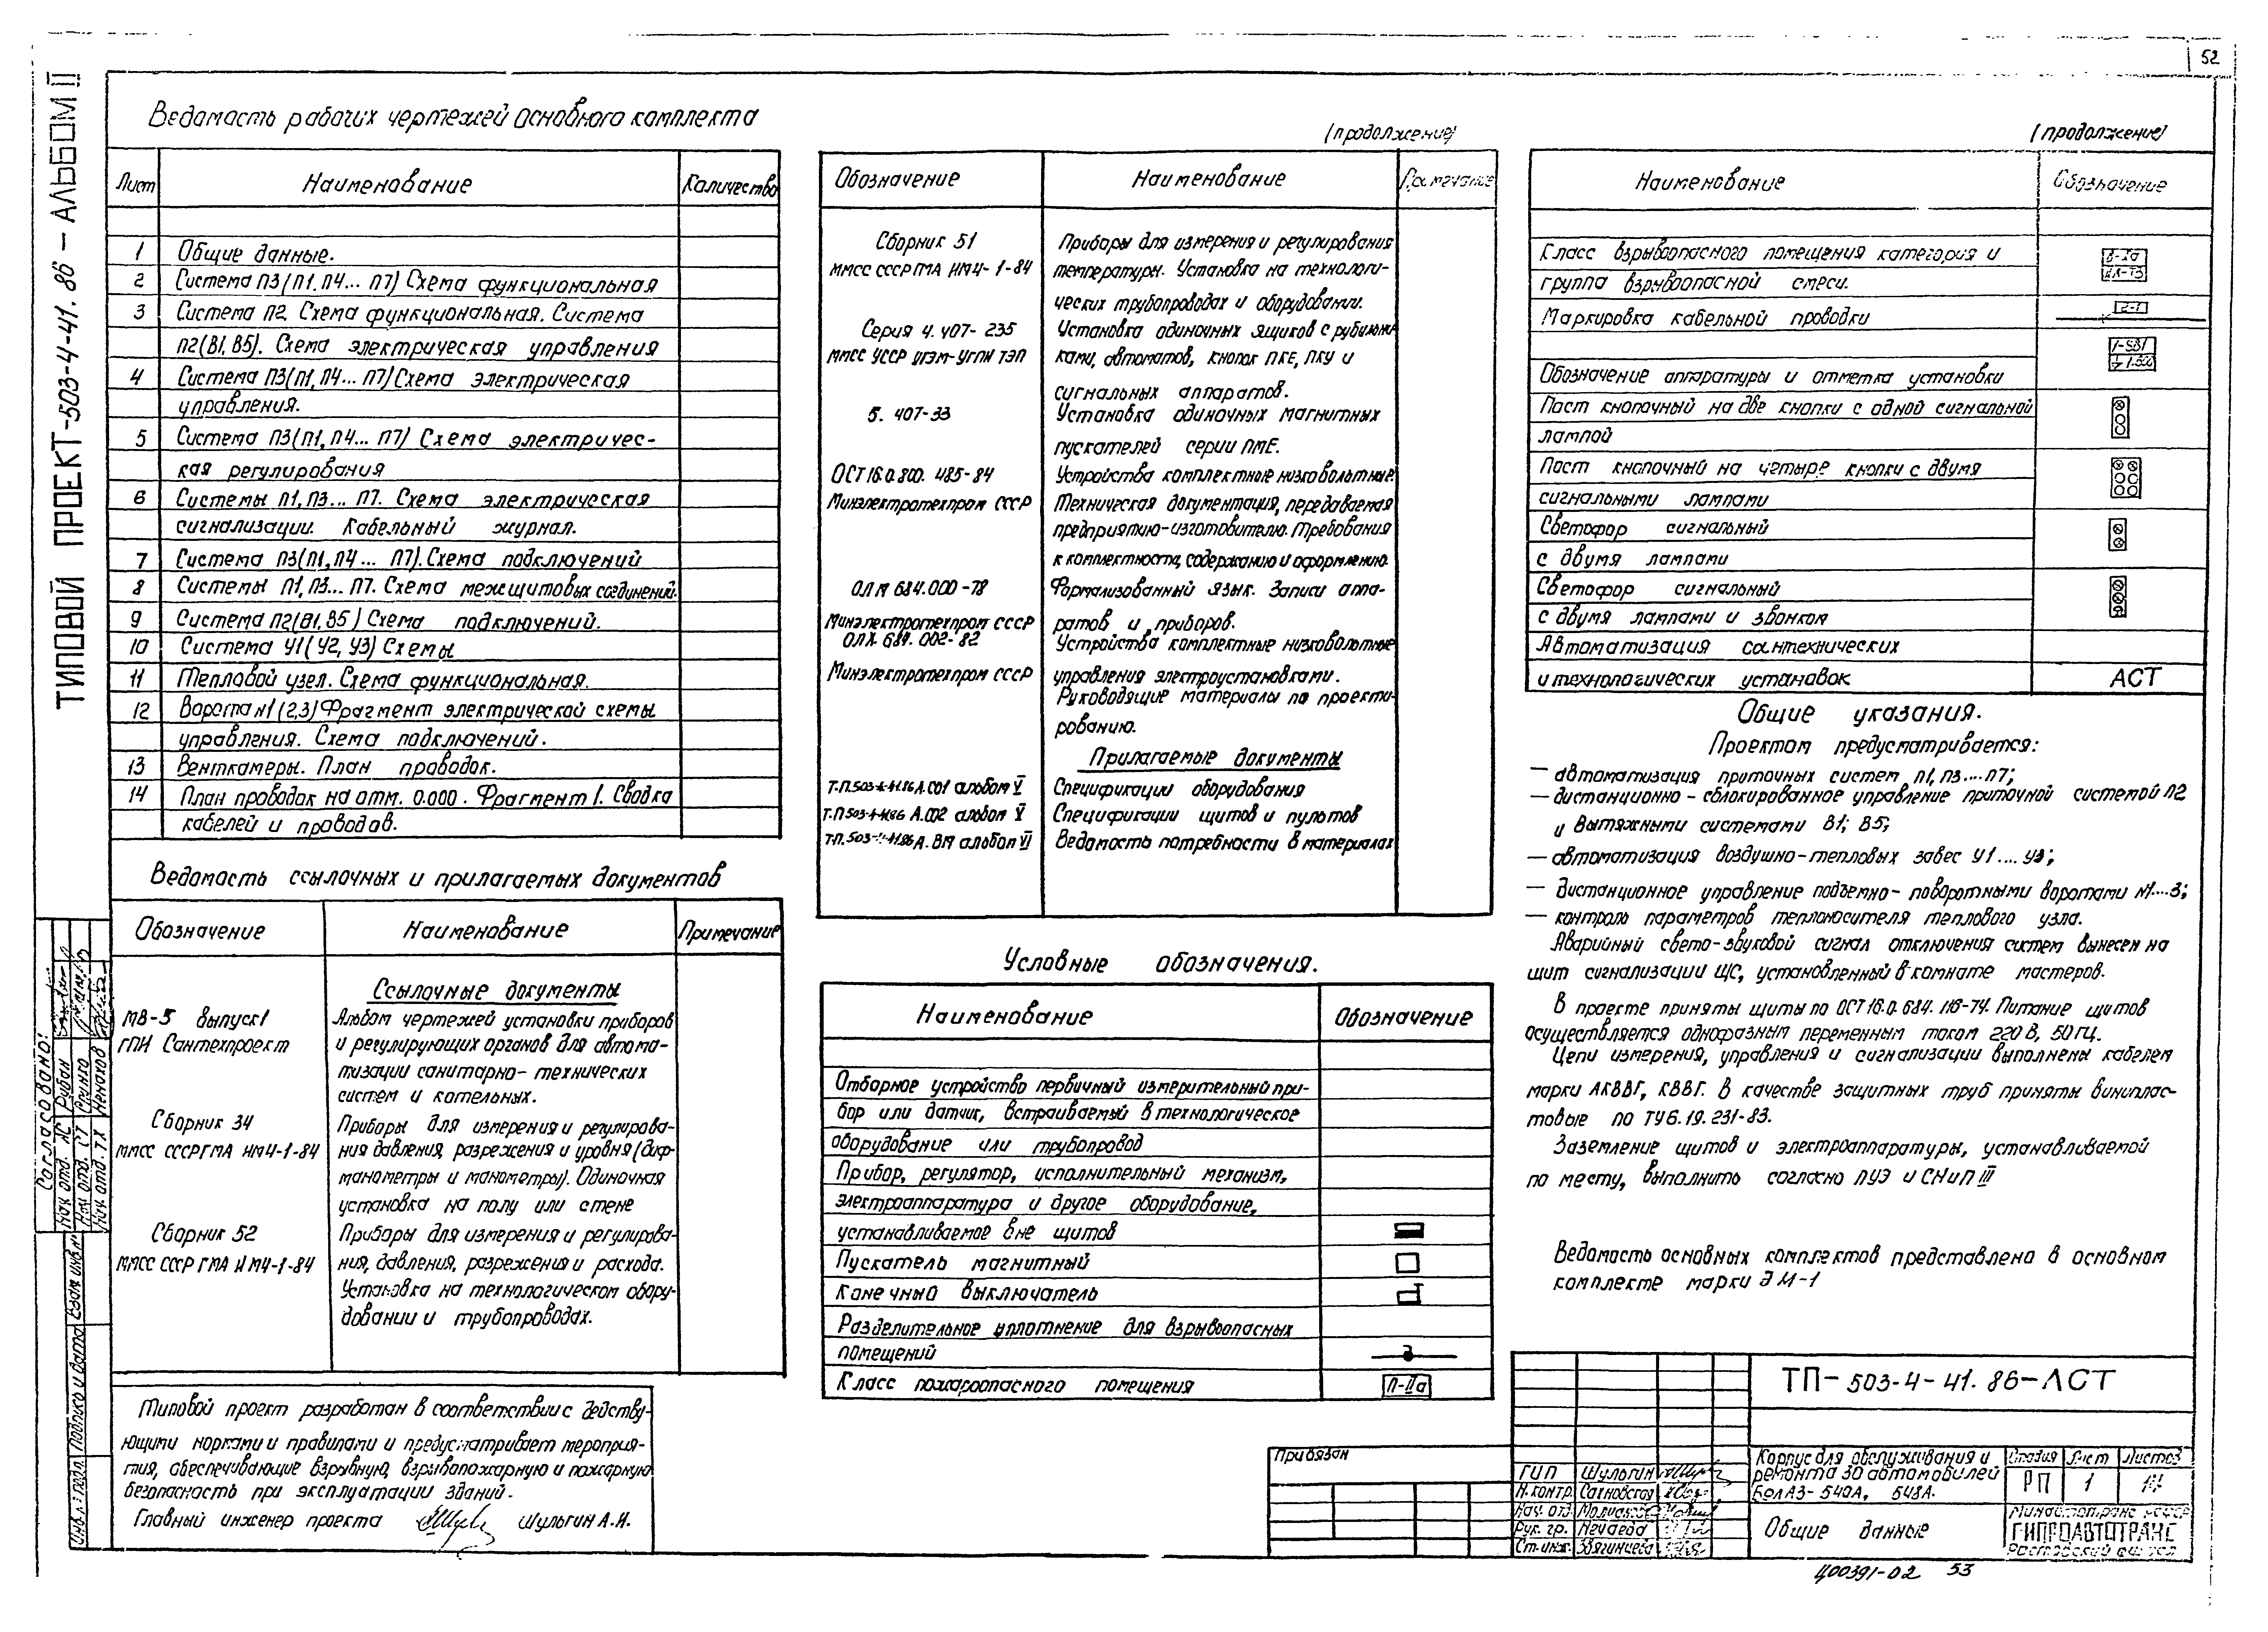 52
ТИПОВОЙ ПРОЕКТ-503-4-41.86 – АЛЬБОМ II
Ведомость рабочих чертежей основного комплекта
Лист Наименование Количество
1 Общие данные.
2 Система П3(П1, П4... П7) Схема функциональная
3 Система П2. Схема функциональная. Система
П2(В1, В5). Схема электрическая управления
4 Система П3(П1, П4... П7) Схема электрическая
управления.
5 Система П3(П1, П4... П7) Схема электричес-
кая регулирования
6 Системы П1, П3... П7. Схема электрическая
сигнализации. Кабельный журнал.
7 Система П3(П1, П4... П7). Схема подключений
8 Системы П1, П3... П7. Схема межщитовых соединений.
9 Система П2(В1, В5) Схема подключений.
10 Система У1(У2, У3) Схемы
11 Тепловой узел. Схема функциональная.
12 Ворота №1(2,3) Фрагмент электрической схемы
управления. Схема подключений.
13 Венткамеры. План проводок.
14 План проводок на отм. 0.000. Фрагмент 1. Сводка
кабелей и проводов.
Ведомость ссылочных и прилагаемых документов
Обозначение Наименование Примечание
Ссылочные документы
МВ-5 выпуск 1 Альбом чертежей установки приборов
ГПИ Сантехпроект и регулирующих органов для автома-
тизации санитарно-технических
систем и котельных.
Сборник 34 Приборы для измерения и регулирова-
ММСС СССР ГМА НМ4-1-84 ния давления, разрежения и уровня (диф-
манометры и манометры). Одиночная
установка на полу или стене
Сборник 52 Приборы для измерения и регулирова-
ММСС СССР ГМА НМ4-1-84 ния, давления, разрежения и расхода.
Установка на технологическом обору-
довании и трубопроводах.
Типовой проект разработан в соответствии с действу-
ющими нормами и правилами и предусматривает мероприя-
тия, обеспечивающие взрывную, взрывопожарную и пожарную
безопасность при эксплуатации зданий.
Главный инженер проекта Шульгин А.И.
(продолжение)
Обозначение Наименование Примечание
Сборник 51 Приборы для измерения и регулирования
ММСС СССР ГМА НМ4-1-84 температуры. Установка на технологи-
ческих трубопроводах и оборудовании.
Серия 4.407-235 Установка одиночных ящиков с рубильни-
ММСС УССР УГЭМ-УГПИ ТЭП ками, автоматов, кнопок ПКЕ, ПКУ и
сигнальных аппаратов.
5.407-33 Установка одиночных магнитных
пускателей серии ПМЕ.
ОСТ 16.0.800.485-84 Устройства комплектные низковольтные.
Минэлектротехпром СССР Техническая документация, передаваемая
предприятию-изготовителю. Требования
к комплектности, содержанию и оформлению.
ОЛМ 684.000-78 Формализованный язык. Записи аппа-
Минэлектротехпром СССР ратов и приборов.
ОЛХ. 684.002-82 Устройства комплектные низковольтные
Минэлектротехпром СССР управления электроустановками.
Руководящие материалы по проекти-
рованию.
Прилагаемые документы
альбом V Спецификации оборудования
альбом V Спецификации щитов и пультов
альбом VI Ведомость потребности в материалах
Условные обозначения.
Наименование Обозначение
Отборное устройство первичный измерительный при-
бор или датчик, встраиваемый в технологическое
оборудование или трубопровод
Прибор, регулятор, исполнительный механизм,
электроаппаратура и другое оборудование,
устанавливаемое вне щитов
Пускатель магнитный
Конечный выключатель
Разделительное уплотнение для взрывоопасных
помещений
Класс пожароопасного помещения П-IIа
(продолжение)
Наименование Обозначение
Класс взрывоопасного помещения категория и В-Iа
группа взрывоопасной смеси.
Маркировка кабельной проводки 2-1
Обозначение аппаратуры и отметка установки
Пост кнопочный на две кнопки с одной сигнальной
лампой
Пост кнопочный на четыре кнопки с двумя
сигнальными лампами
Светофор сигнальный
с двумя лампами
Светофор сигнальный
с двумя лампами и звонком
Автоматизация сантехнических
и технологических установок АСТ
Общие указания.
Проектом предусматривается:
— автоматизация приточных систем П1, П3...П7;
— дистанционно-сблокированное управление приточной системой П2
и вытяжными системами В1; В5;
— автоматизация воздушно-тепловых завес У1...У3;
— дистанционное управление подъемно-поворотными воротами №1...3;
— контроль параметров теплоносителя теплового узла.
Аварийный свето-звуковой сигнал отключения систем вынесен на
щит сигнализации ЩС, установленный в комнате мастеров.
В проекте приняты щиты по ОСТ 16.0.684.116-74. Питание щитов
осуществляется однофазным переменным током 220 В, 50 гц.
Цепи измерения, управления и сигнализации выполнены кабелем
марки АКВВГ, КВВГ. В качестве защитных труб приняты винеплас-
товые по ТУ6.19.231-83.
Заземление щитов и электроаппаратуры, устанавливаемой
по месту, выполнить согласно ПУЭ и СНиП III
Ведомость основных комплектов представлена в основном
комплекте марки ЭМ-1
Согласовано:
Нач. отд. АС Рубан
Нач. отд. СТ
Нач. отд. ТХ Ненахов
Взам. инв. №
Подпись и дата
Инв. № подл.
Привязан
ТП-503-4-41.86-АСТ
ГИП Шульгин
Н. контр. Сахновская
Нач. отд.
Рук. гр. Нечаева
Ст. инж. Звягинцева
Корпус для обслуживания и
ремонта 30 автомобилей
БелАЗ-540А, 548А.
Стадия Лист Листов
РП 1 14
Общие данные
Минавтотранс РСФСР
ГИПРОАВТОТРАНС
Ростовский филиал
Ц00391-02 53